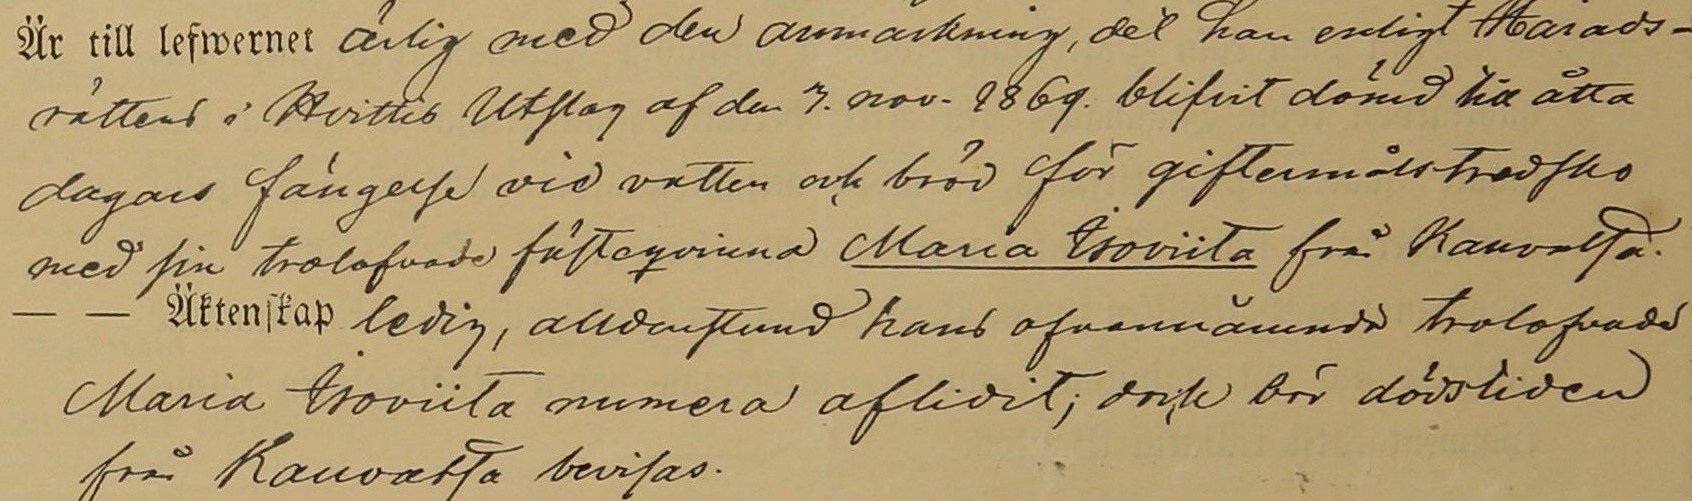 Är till lefwernet ärlig med den anmärkning, det han enligt Härads-
rättens i Hvittis Utslag af den 7. nov. 1869. blifvit dömd till åtta
dagars fängelse vid vatten och bröd för giftermålstredsko
med sin trolofvade fästeqvinna Maria Isoviita från Kauvatsa.
— — Äktenskap ledig, alldenstund hans ofvannämnda trolofvade
Maria Isoviita numera aflidit; dock bör dödstiden
från Kauvatsa bevisas.